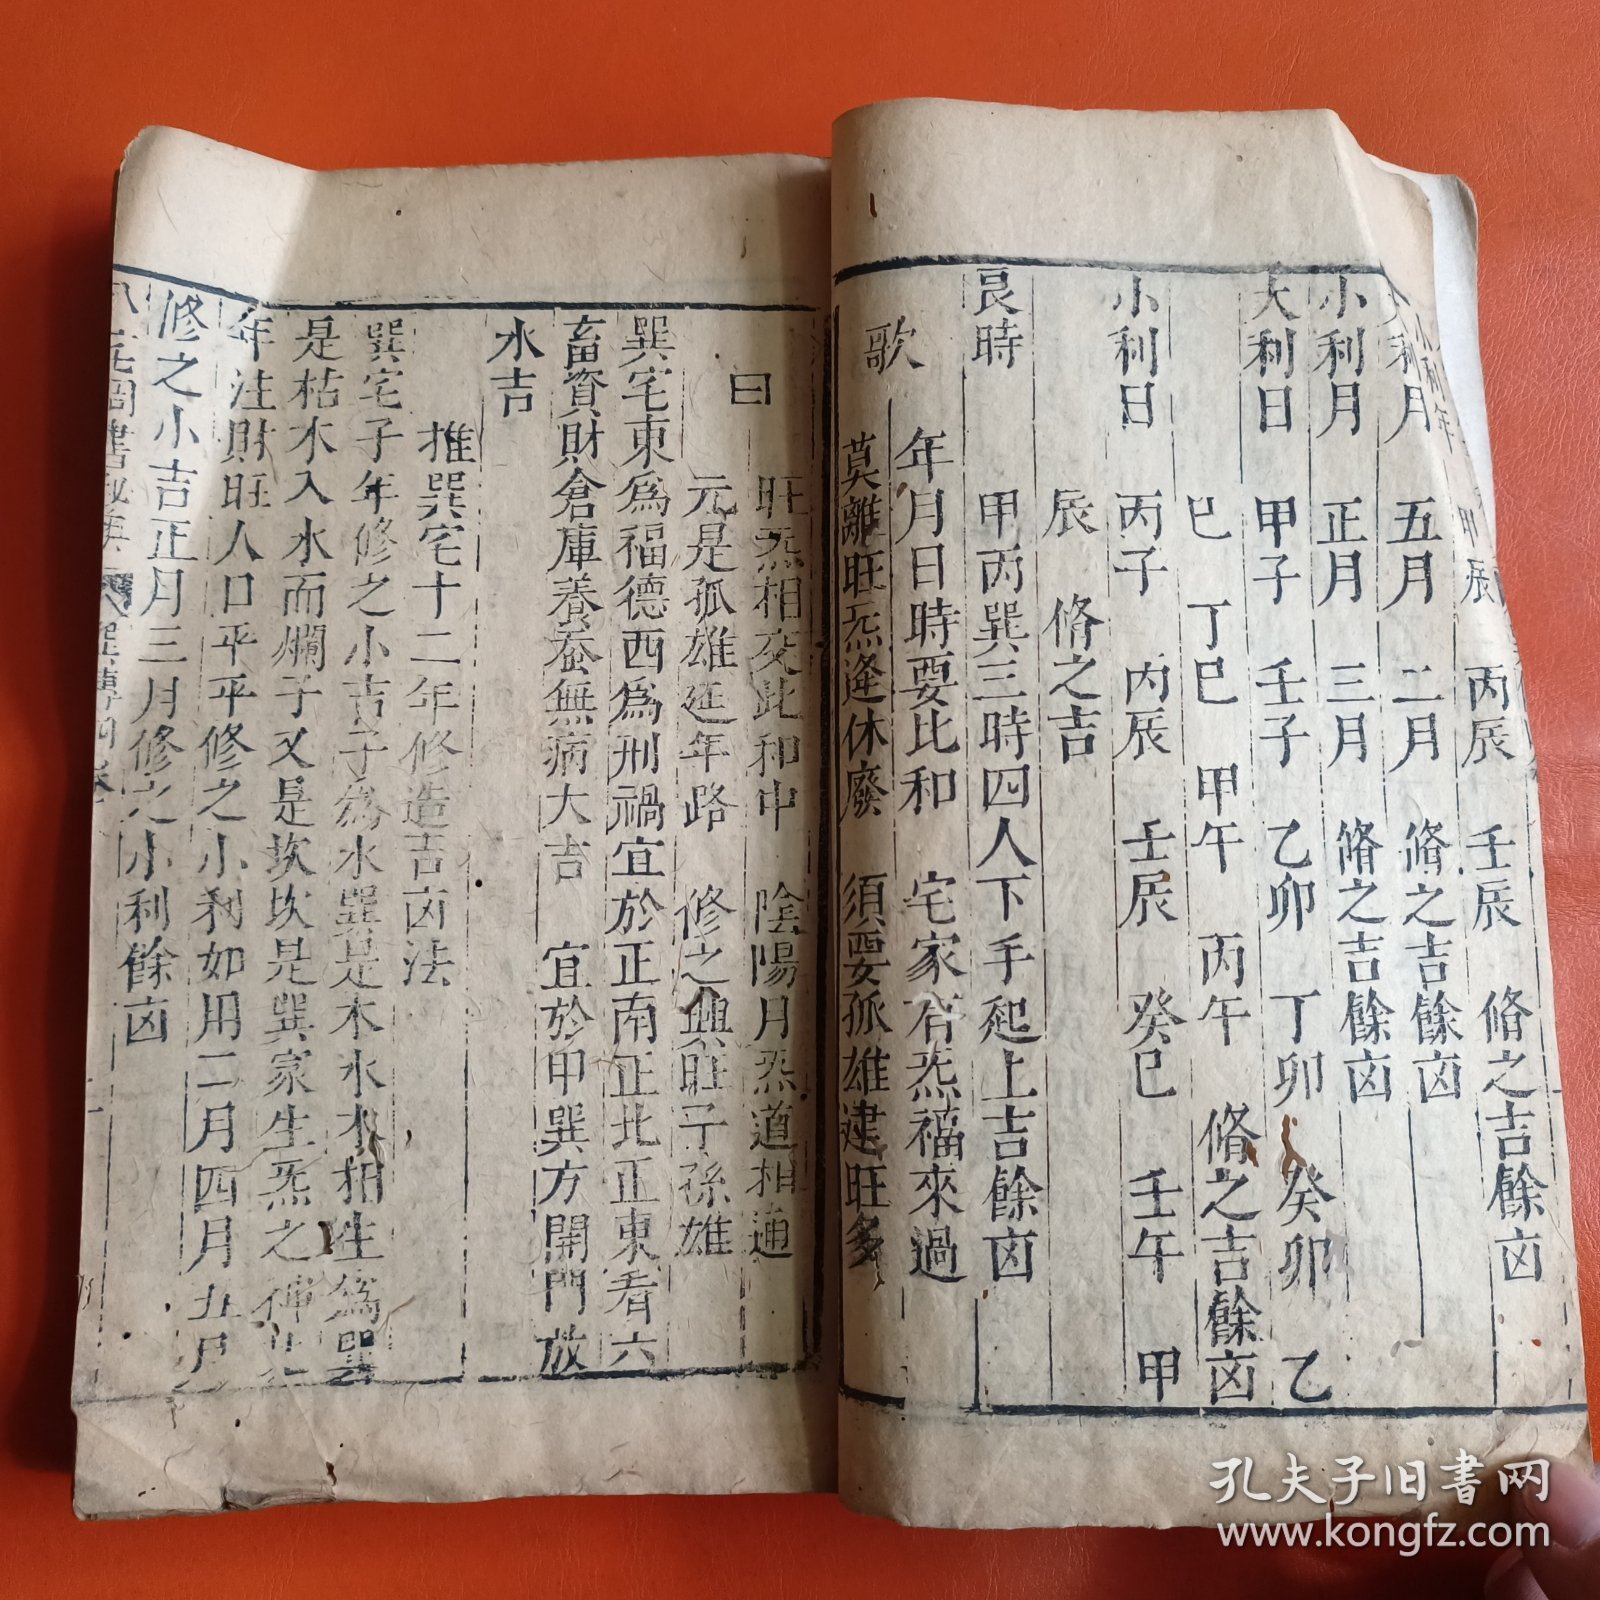 小利年 甲辰 丙辰 壬辰 脩之吉餘凶
大利月 五月 二月 脩之吉餘凶
小利月 正月 三月 脩之吉餘凶
大利日 甲子 壬子 乙卯 丁卯 癸卯 乙
巳 丁巳 甲午 丙午 脩之吉餘凶
小利日 丙子 丙辰 壬辰 癸巳 壬午 甲
辰 脩之吉
良時 甲丙巽三時四人下手起上吉餘凶
年月日時要比和 宅家有炁福來過
歌 莫離旺炁逄休廢 須要孤雄建旺多
旺炁相交此和中 陰陽月炁道相通
曰 元是孤雄延年路 修之興旺子孫雄
巽宅東為福德西為刑禍宜於正南正北正東看六
畜資財倉庫養蚕無病大吉 宜於甲巽方開門放
水吉
推巽宅十二年修造吉凶法
巽宅子年修之小吉子為水巽是木水木相生為巽
是枯木入水而爛子又是坎坎是巽家生炁之神
年注財旺人口平平修之小利如用二月四月五月
修之小吉正月三月修之小利餘凶
宅圖書秘
孔夫子旧书网
www.kongfz.com